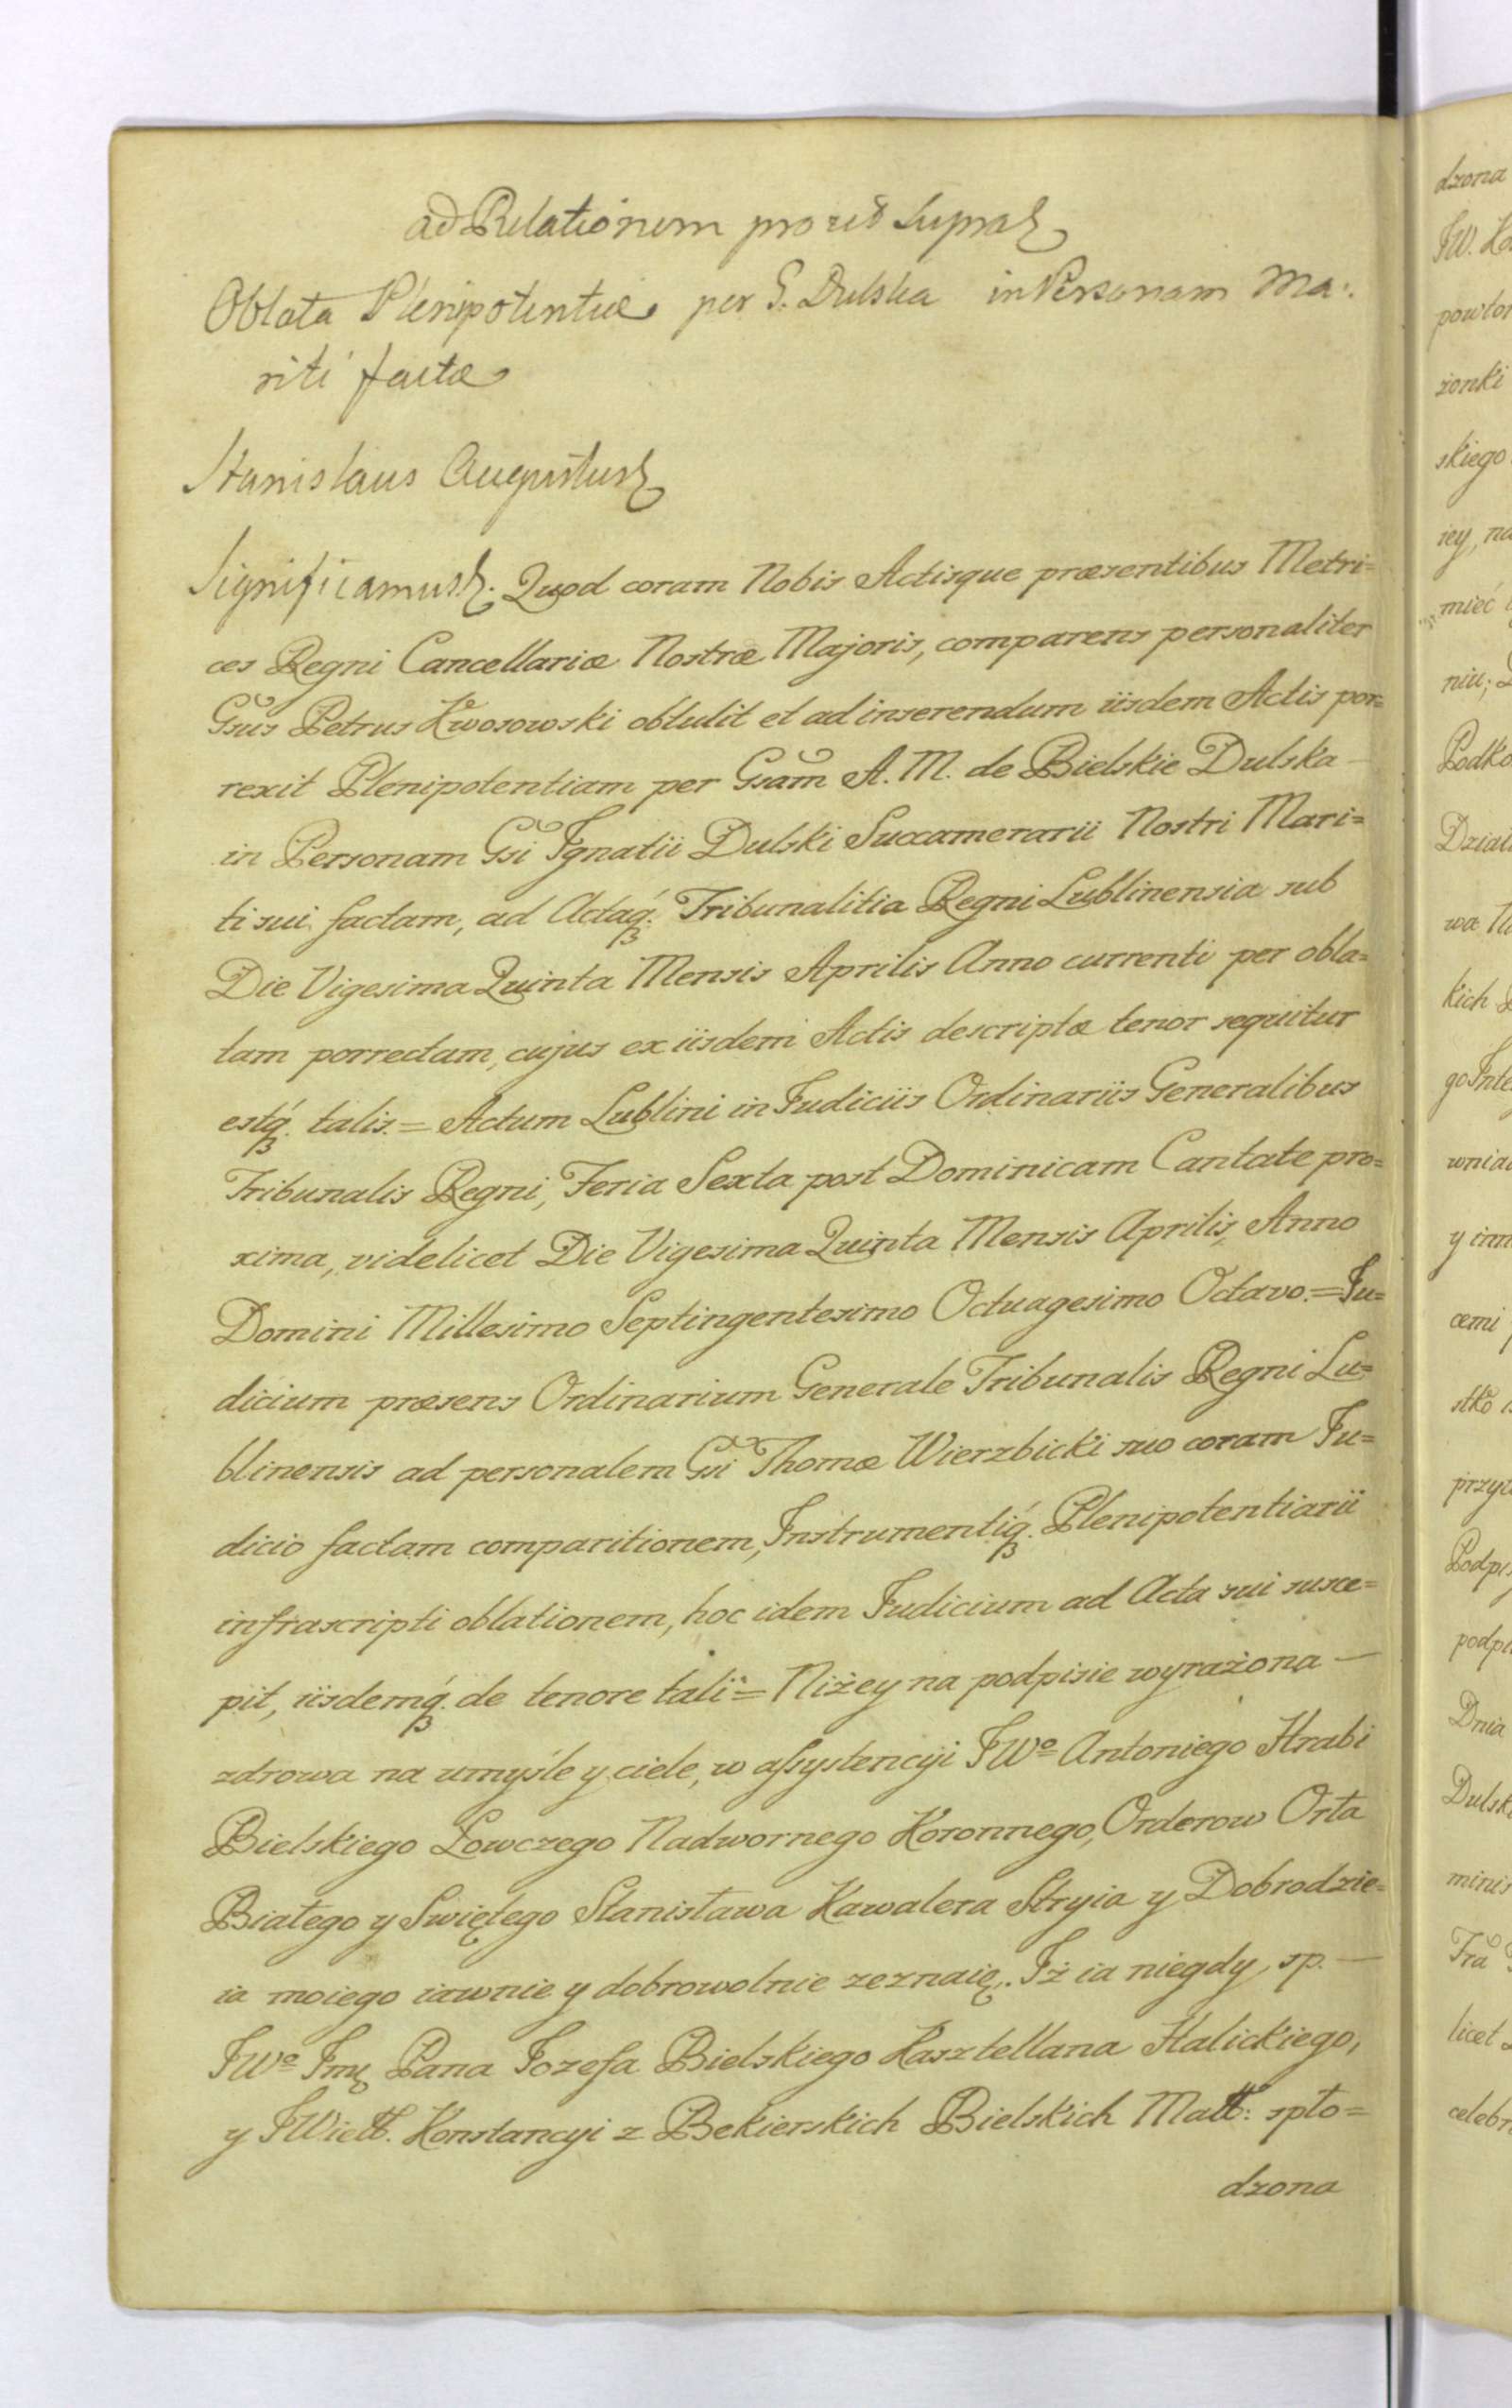 ad Relationem pro ut supra
Oblata Plenipotentiæ per G. Dulska in Personam Ma:
riti factæ
Stanislaus Augustus
Significamus. Quod coram Nobis Actisque præsentibus Metri=
ces Regni Cancellariæ Nostræ Majoris, comparens personaliter
Gsus Petrus Kwosowski obtulit et ad inserendum iisdem Actis por=
rexit Plenipotentiam per Gsam A. M. de Bielskie Dulska —
in Personam Gsi Ignatii Dulski Succamerarii Nostri Mari=
ti sui factam, ad Actaq́. Tribunalitia Regni Lublinensia sub
Die Vigesima Quinta Mensis Aprilis Anno currenti per obla=
tam porrectam, cujus ex iisdem Actis descriptæ tenor sequitur
estq́. talis. = Actum Lublini in Judiciis Ordinariis Generalibus
Tribunalis Regni, Feria Sexta post Dominicam Cantate pro=
xima, videlicet Die Vigesima Quinta Mensis Aprilis, Anno
Domini Millesimo Septingentesimo Octuagesimo Octavo. = Ju=
dicium præsens Ordinarium Generale Tribunalis Regni Lu=
blinensis ad personalem Gsi Thomæ Wierzbicki suo coram Ju=
dicio factam comparitionem, Instrumentiq́. Plenipotentiarii
infrascripti oblationem, hoc idem Judicium ad Acta sui susce=
pit, iisdemq́. de tenore tali = Niżey na podpisie wyrażona —
zdrowa na umyśle y ciele, w assystencyi JWº Antoniego Hrabi
Bielskiego Łowczego Nadwornego Koronnego, Orderow Orła
Białego y Swiętego Stanisława Kawalera Stryia y Dobrodzie=
ia moiego iawnie y dobrowolnie zeznaię. Iż ia niegdy, sp. —
JWº Jmę Pana Jozefa Bielskiego Kasztellana Halickiego,
y JWiel. Konstancyi z Bekierskich Bielskich Małł: spło=
dzona
dzona
powtor
żonki
skiego
iey, na
mieć
niu;
Podko
kich
y inn
cemi
podpi
Dnia
Dulsk
minis
licet
celebr